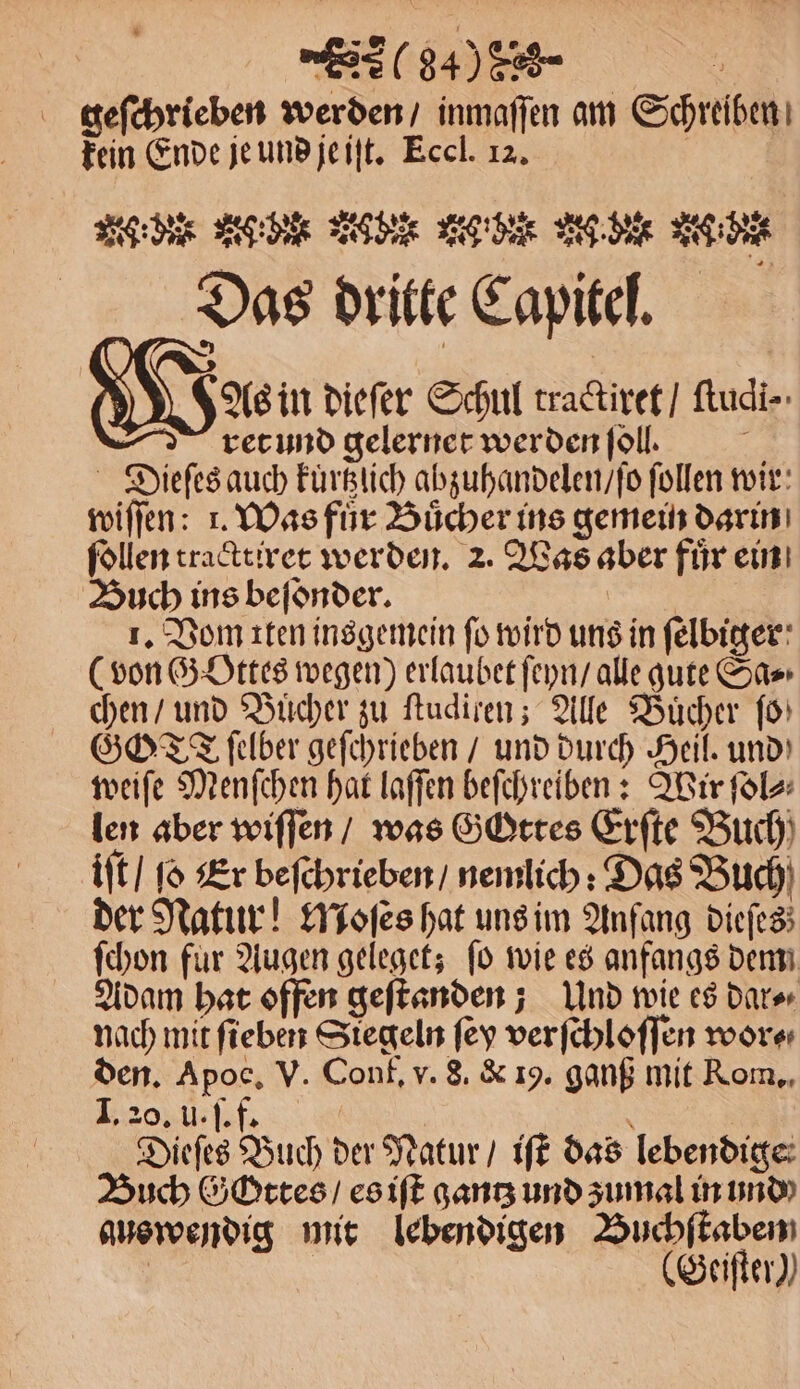 (84)
geſchrieben werden/ inmaſſen am Schreiben
kein Ende je und je iſt. Eccl. 12.
Das dritte Capitel.
WAs in dieſer Schul tractiret/ ſtudi-
ret und gelernet werden ſoll.
Dieſes auch kürtzlich abzuhandelen/ ſo ſollen wir
wiſſen: 1. Was für Bůcher ins gemein darin
ſollen tractiret werden. 2. Was aber fůr ein
Buch ins beſonder.
1. Vom 1ten insgemein ſo wird uns in ſelbiger
(von GOttes wegen) erlaubet ſeyn/ alle gute Sa-
chen/ und Bůcher zu ſtudiren; Alle Bůcher ſo
GOTT ſelber geſchrieben / und durch Heil. und
weiſe Menſchen hat laſſen beſchreiben: Wir ſol-
len aber wiſſen/ was GOttes Erſte Buch
iſt/ ſo Er beſchrieben/ nemlich: Das Buch
der Natur! Moſes hat uns im Anfang dieſes
ſchon fur Augen geleget; ſo wie es anfangs dem
Adam hat offen geſtanden; Und wie es dar-
nach mit ſieben Siegeln ſey verſchloſſen wor-
den. Apoc. V. Conf. v. 8. & 19. gantz mit Rom.
I. 20. u. ſ. f.
Dieſes Buch der Natur/ iſt das lebendige
Buch GOttes/ es iſt gantz und zumal in und
auswendig mit lebendigen Buchſtaben
(Geiſter)